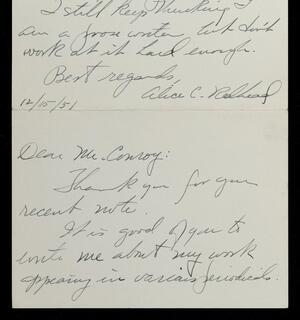 I still keep thinking I
am a prose writer but don't
work at it hard enough.
Best regards,
Alice C. Redhead
12/15/51
Dear Mr. Conroy:
Thank you for your
recent note.
It is good of you to
write me about my work
appearing in various periodicals.